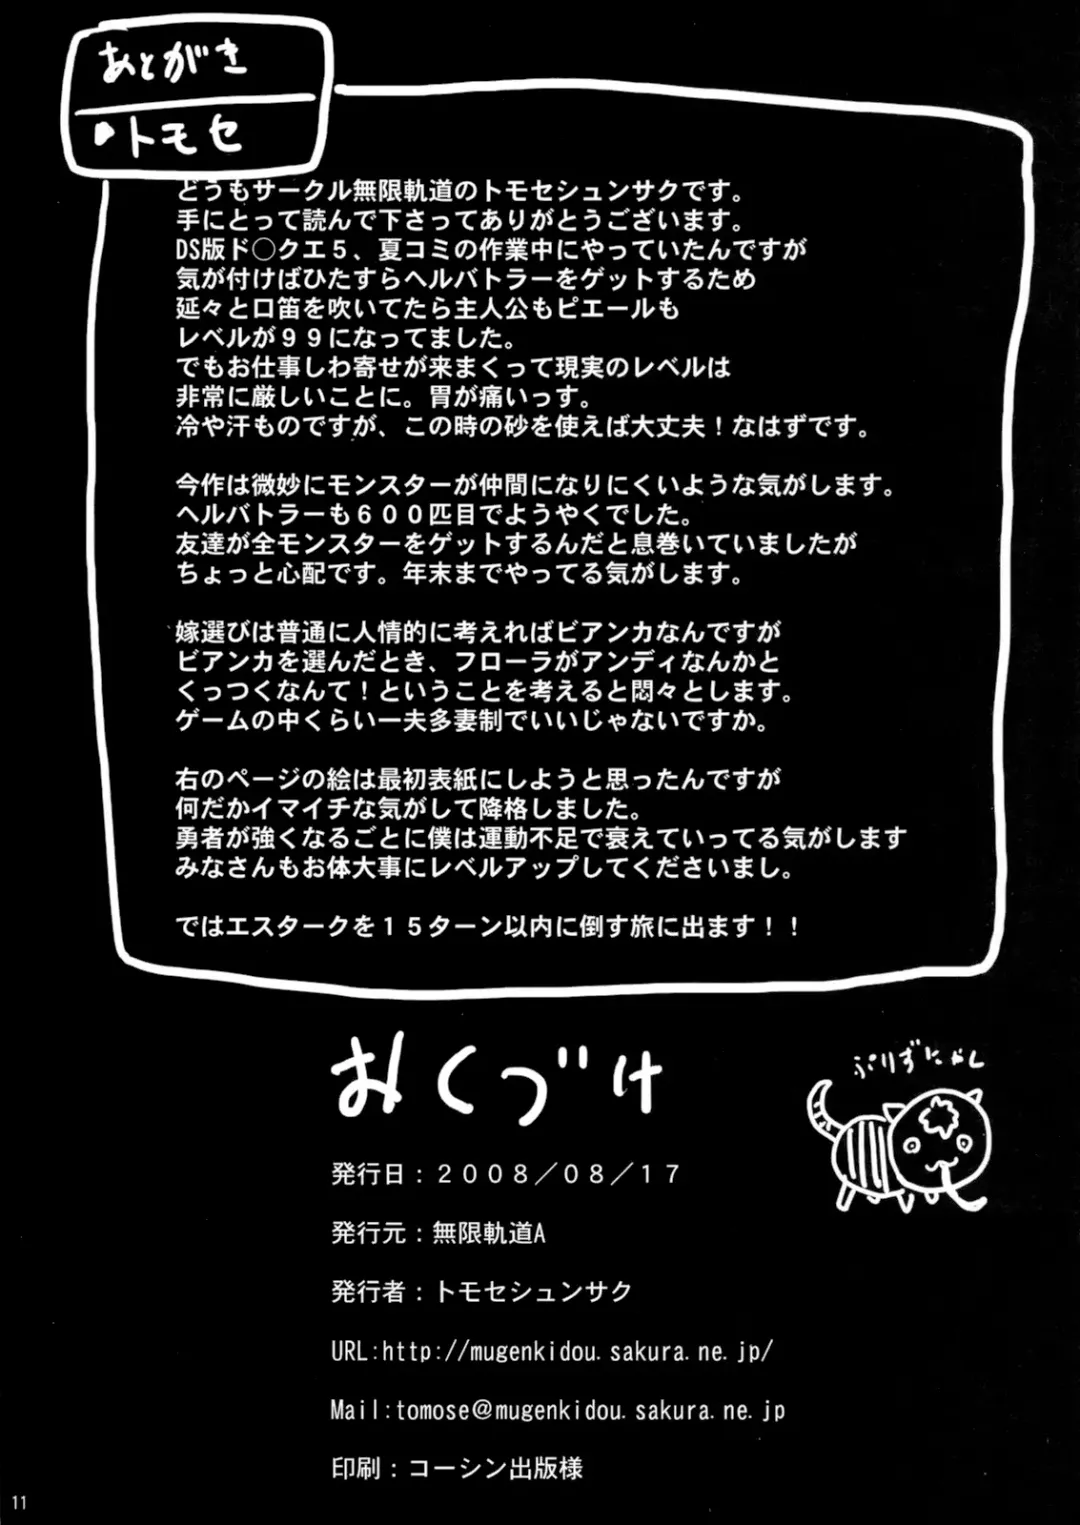 あとがき
トモセ
どうもサークル無限軌道のトモセシュンサクです。
手にとって読んで下さってありがとうございます。
DS版ド○クエ５、夏コミの作業中にやっていたんですが
気が付けばひたすらヘルバトラーをゲットするため
延々と口笛を吹いてたら主人公もピエールも
レベルが９９になってました。
でもお仕事しわ寄せが来まくって現実のレベルは
非常に厳しいことに。胃が痛いっす。
冷や汗ものですが、この時の砂を使えば大丈夫！なはずです。
今作は微妙にモンスターが仲間になりにくいような気がします。
ヘルバトラーも６００匹目でようやくでした。
友達が全モンスターをゲットするんだと息巻いていましたが
ちょっと心配です。年末までやってる気がします。
嫁選びは普通に人情的に考えればビアンカなんですが
ビアンカを選んだとき、フローラがアンディなんかと
くっつくなんて！ということを考えると悶々とします。
ゲームの中くらい一夫多妻制でいいじゃないですか。
右のページの絵は最初表紙にしようと思ったんですが
何だかイマイチな気がして降格しました。
勇者が強くなるごとに僕は運動不足で衰えていってる気がします
みなさんもお体大事にレベルアップしてくださいまし。
ではエスタークを１５ターン以内に倒す旅に出ます！！
おくづけ
ぷりずにゃし
発行日：２００８／０８／１７
発行元：無限軌道A
発行者：トモセシュンサク
URL:http://mugenkidou.sakura.ne.jp/
Mail:tomose@mugenkidou.sakura.ne.jp
印刷：コーシン出版様
11